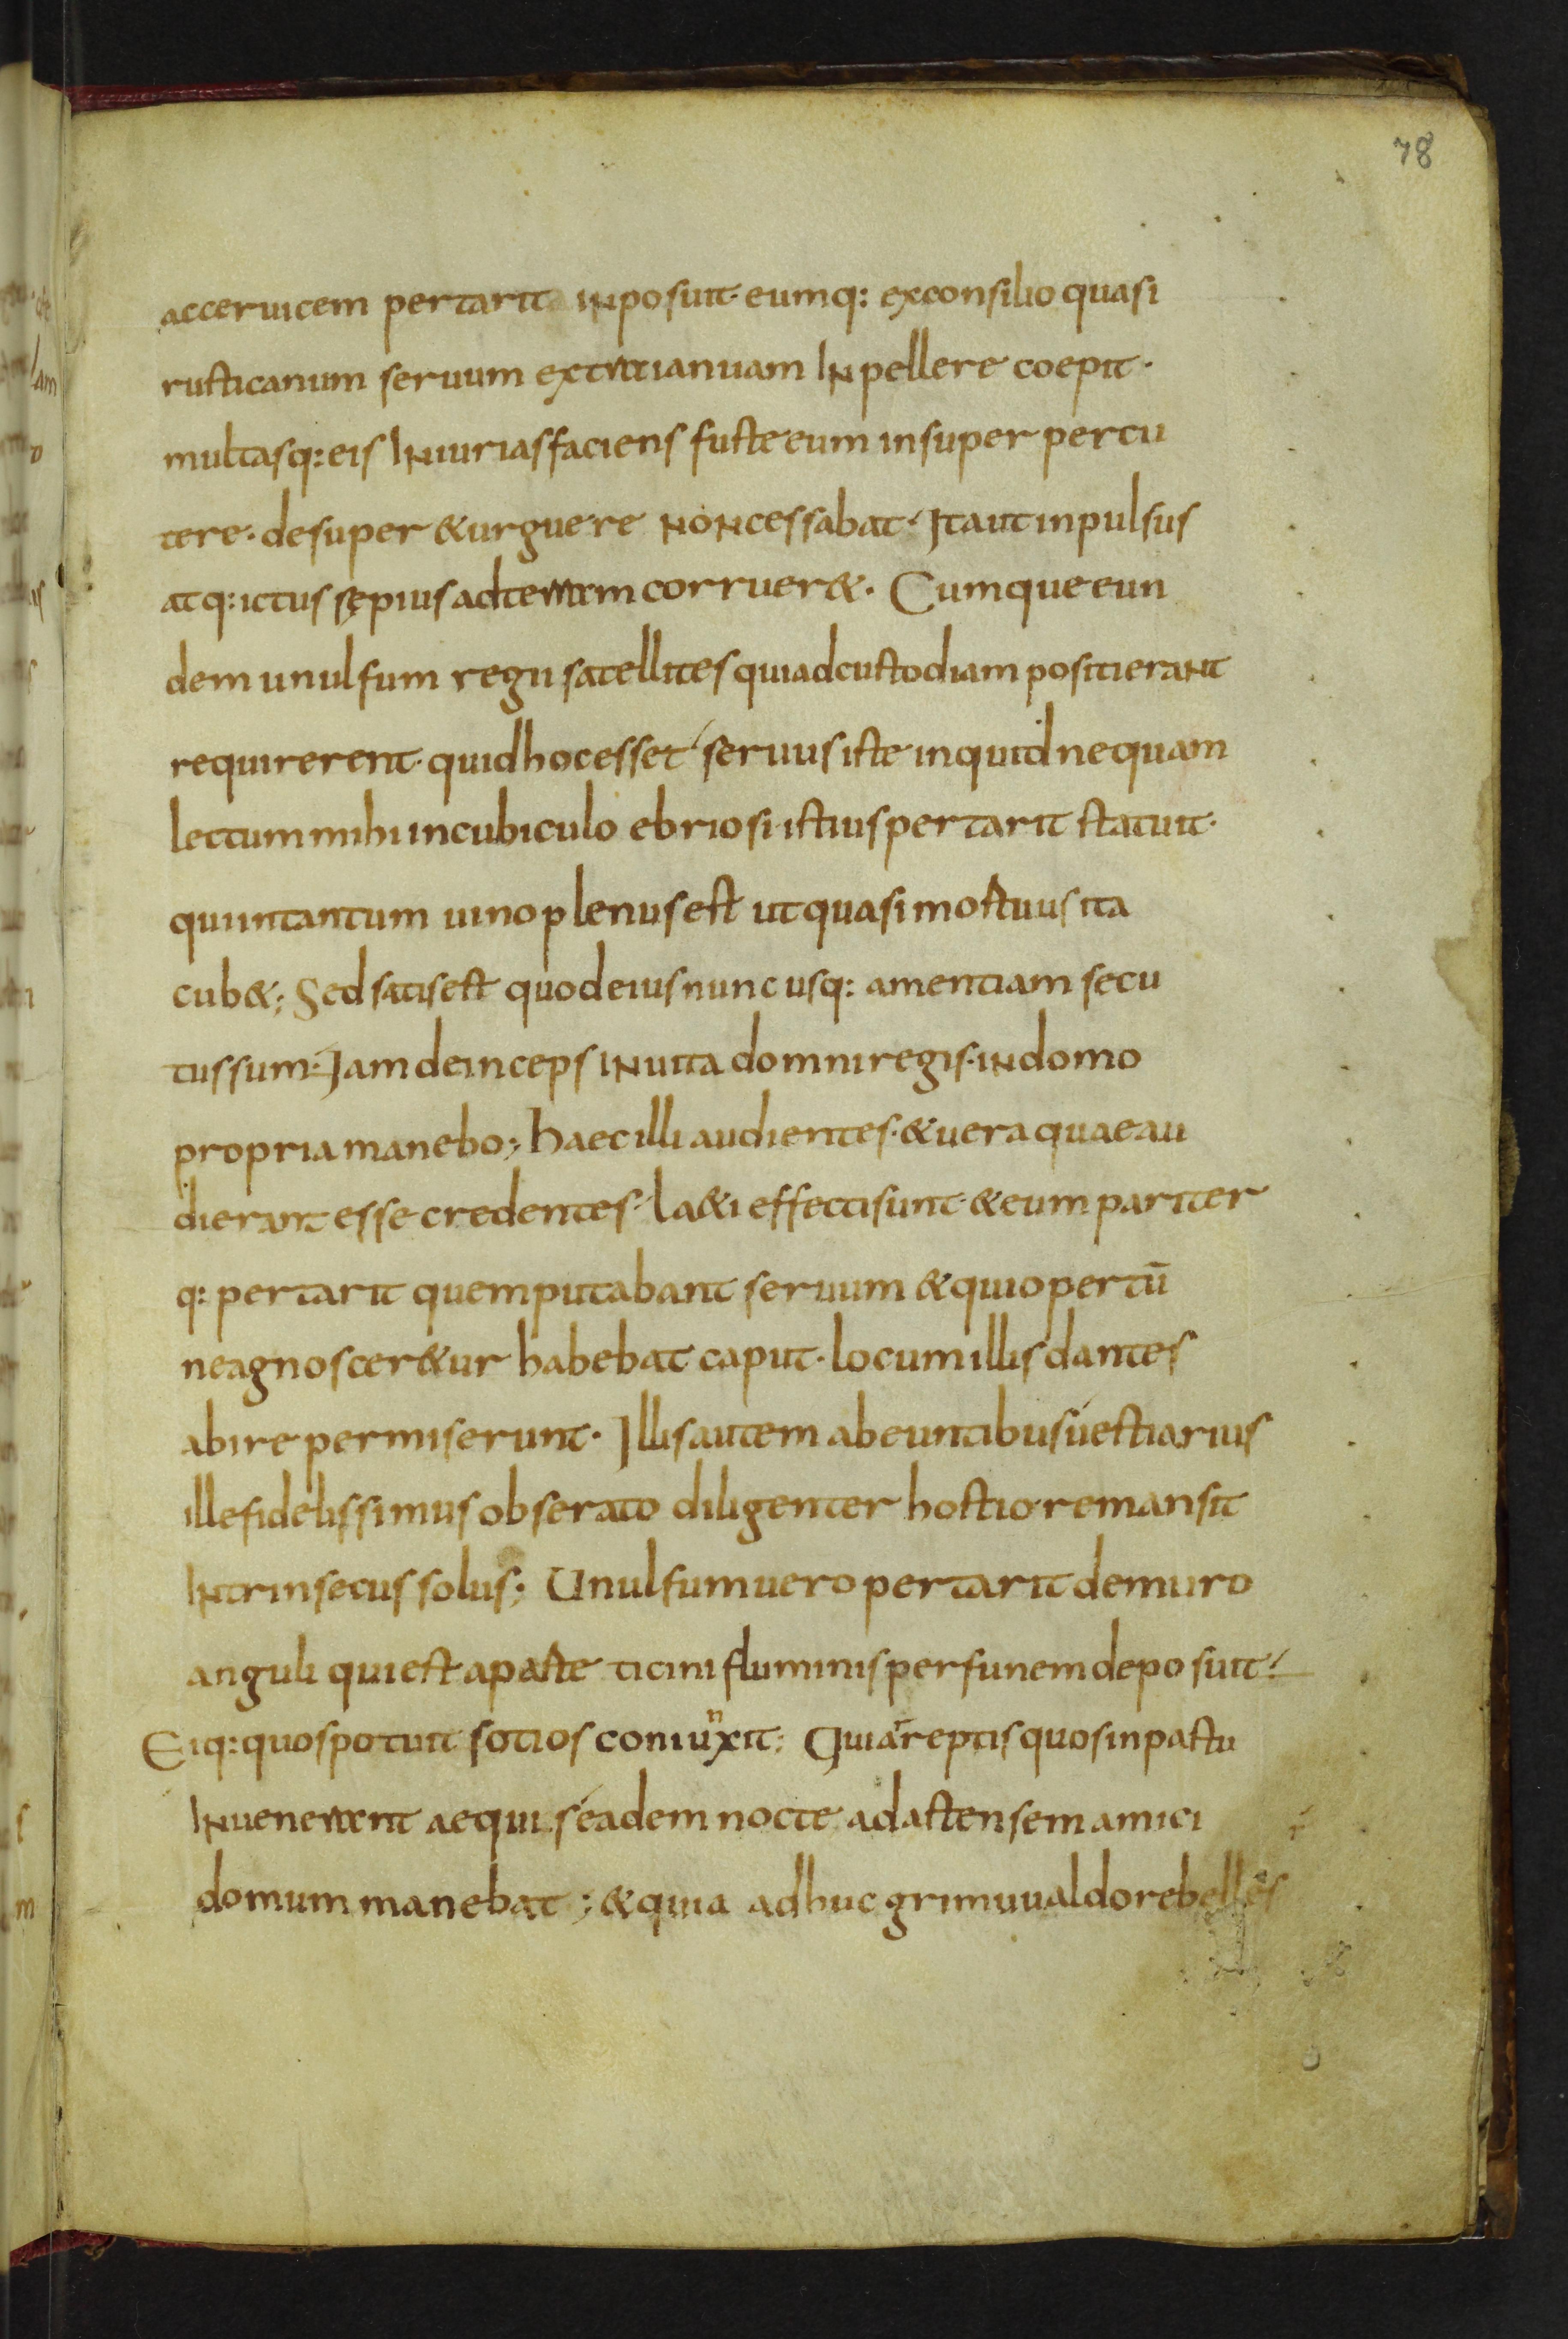 78
ac ceruicem pertarit inposuit· eumq: exconsilio quasi
rusticanum seruum extra ianuam Inpellere coepit·
multasq: eis Iniurias faciens fuste eum insuper percu
tere· desuper & urguere non cessabat· Ita ut inpulsus
atq: ictus sępius ad terram corruer&· Cumque eun
dem unulfum regii satellites qui ad custodiam positi erant
requirerent· quid hoc esset seruus iste inquid nequam
lectum mihi in cubiculo ebriosi istius pertarit statuit·
qui in tantum uino plenus est ut quasi mortuus ita
cub&; Sed satis est quod eius nunc usq: amentiam secu
tus sum· Iam deinceps in uita domni regis· in domo
propria manebo; haec illi audientes· & uera quae au
dierant esse credentes· la&i effecti sunt· & eum pariter
q: pertarit quem putabant seruum & qui opertū
ne agnoscer&ur habebat caput· locum illis dantes
abire permiserunt· Illis autem abeuntibus uestiarius
ille fidelissimus obserato diligenter hostio remansit
Intrinsecus solus; Unulfum uero pertarit de muro
anguli qui est a parte ticini fluminis per funem deposuit·
Eiq: quos potuit sotios coniunxit; Qui arreptis quos in pastu
Inuenerant aequis eadem nocte ad astensem amici
domum manebat; & quia adhuc grimuualdo rebelles